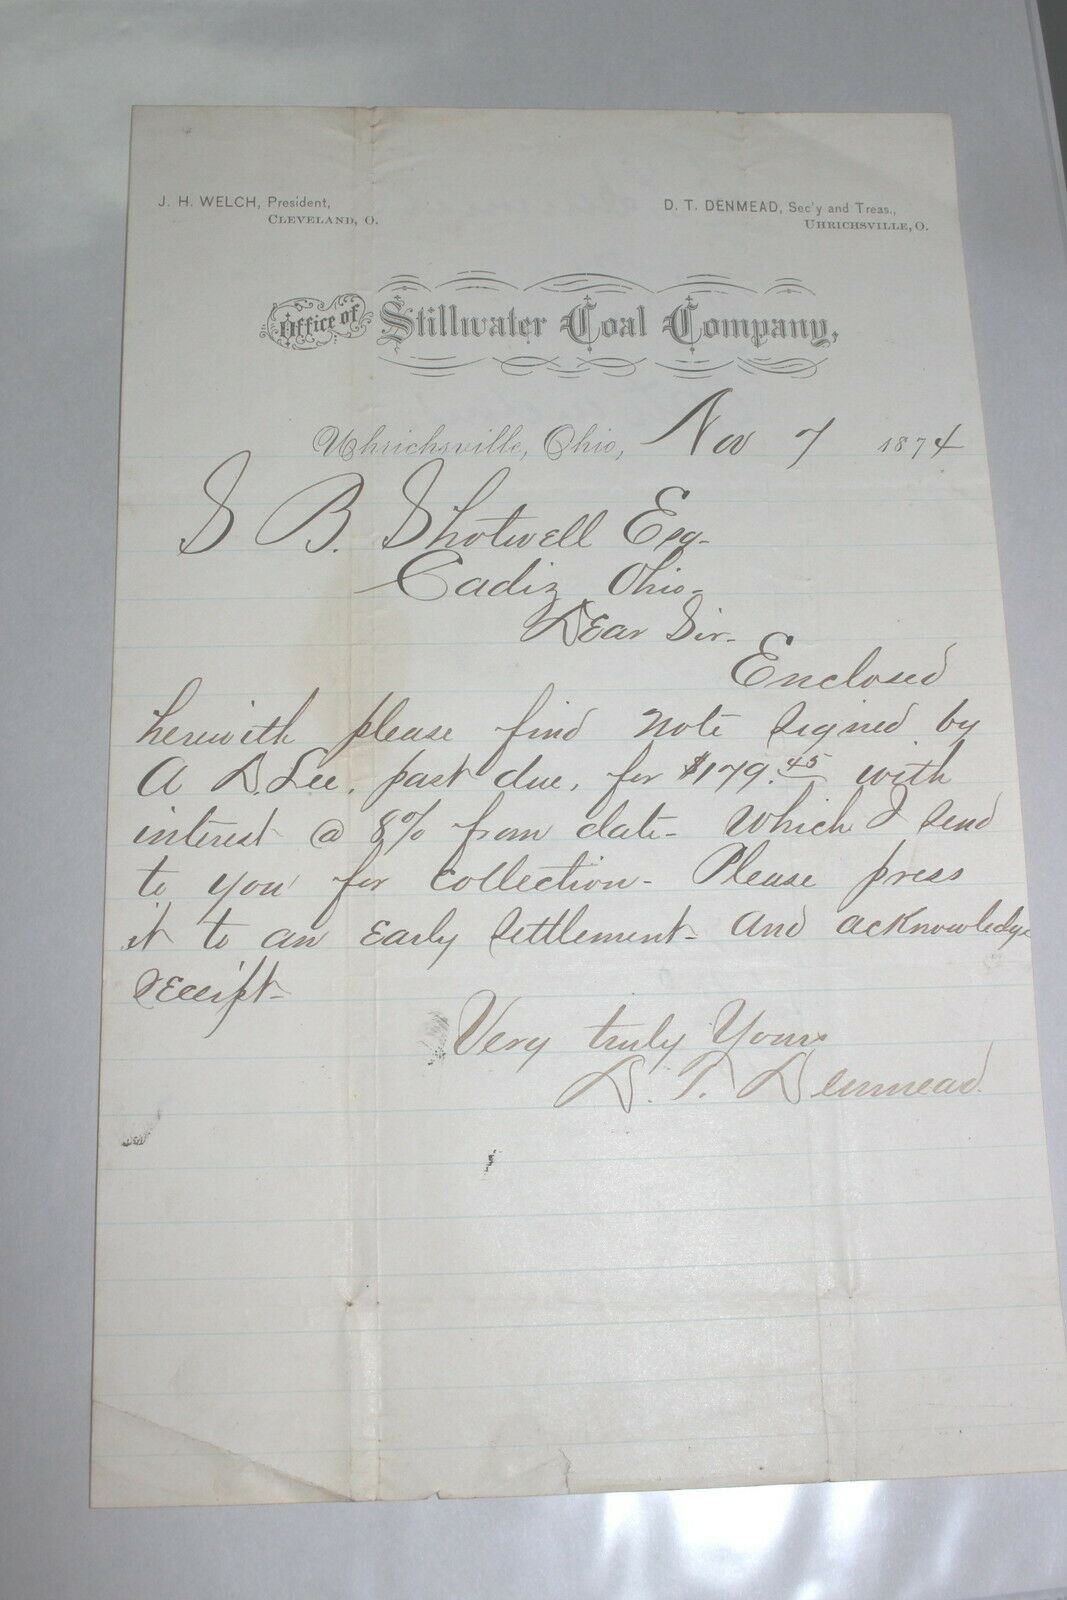 J. H. WELCH, President,
CLEVELAND, O.
D. T. DENMEAD, Sec'y and Treas.,
UHRICHSVILLE, O.
Office of Stillwater Coal Company,
Uhrichsville, Ohio, Nov 7 1874
S B. Shotwell Esq-
Cadiz Ohio-
Dear Sir-
Enclosed
herewith please find note signed by
A D. Lee, past due, for $179.45 with
interest @ 8% from date- Which I send
to you for Collection- Please press
it to an Early Settlement- and acknowledge
receipt-
Very truly Yours
D. T. Denmead.